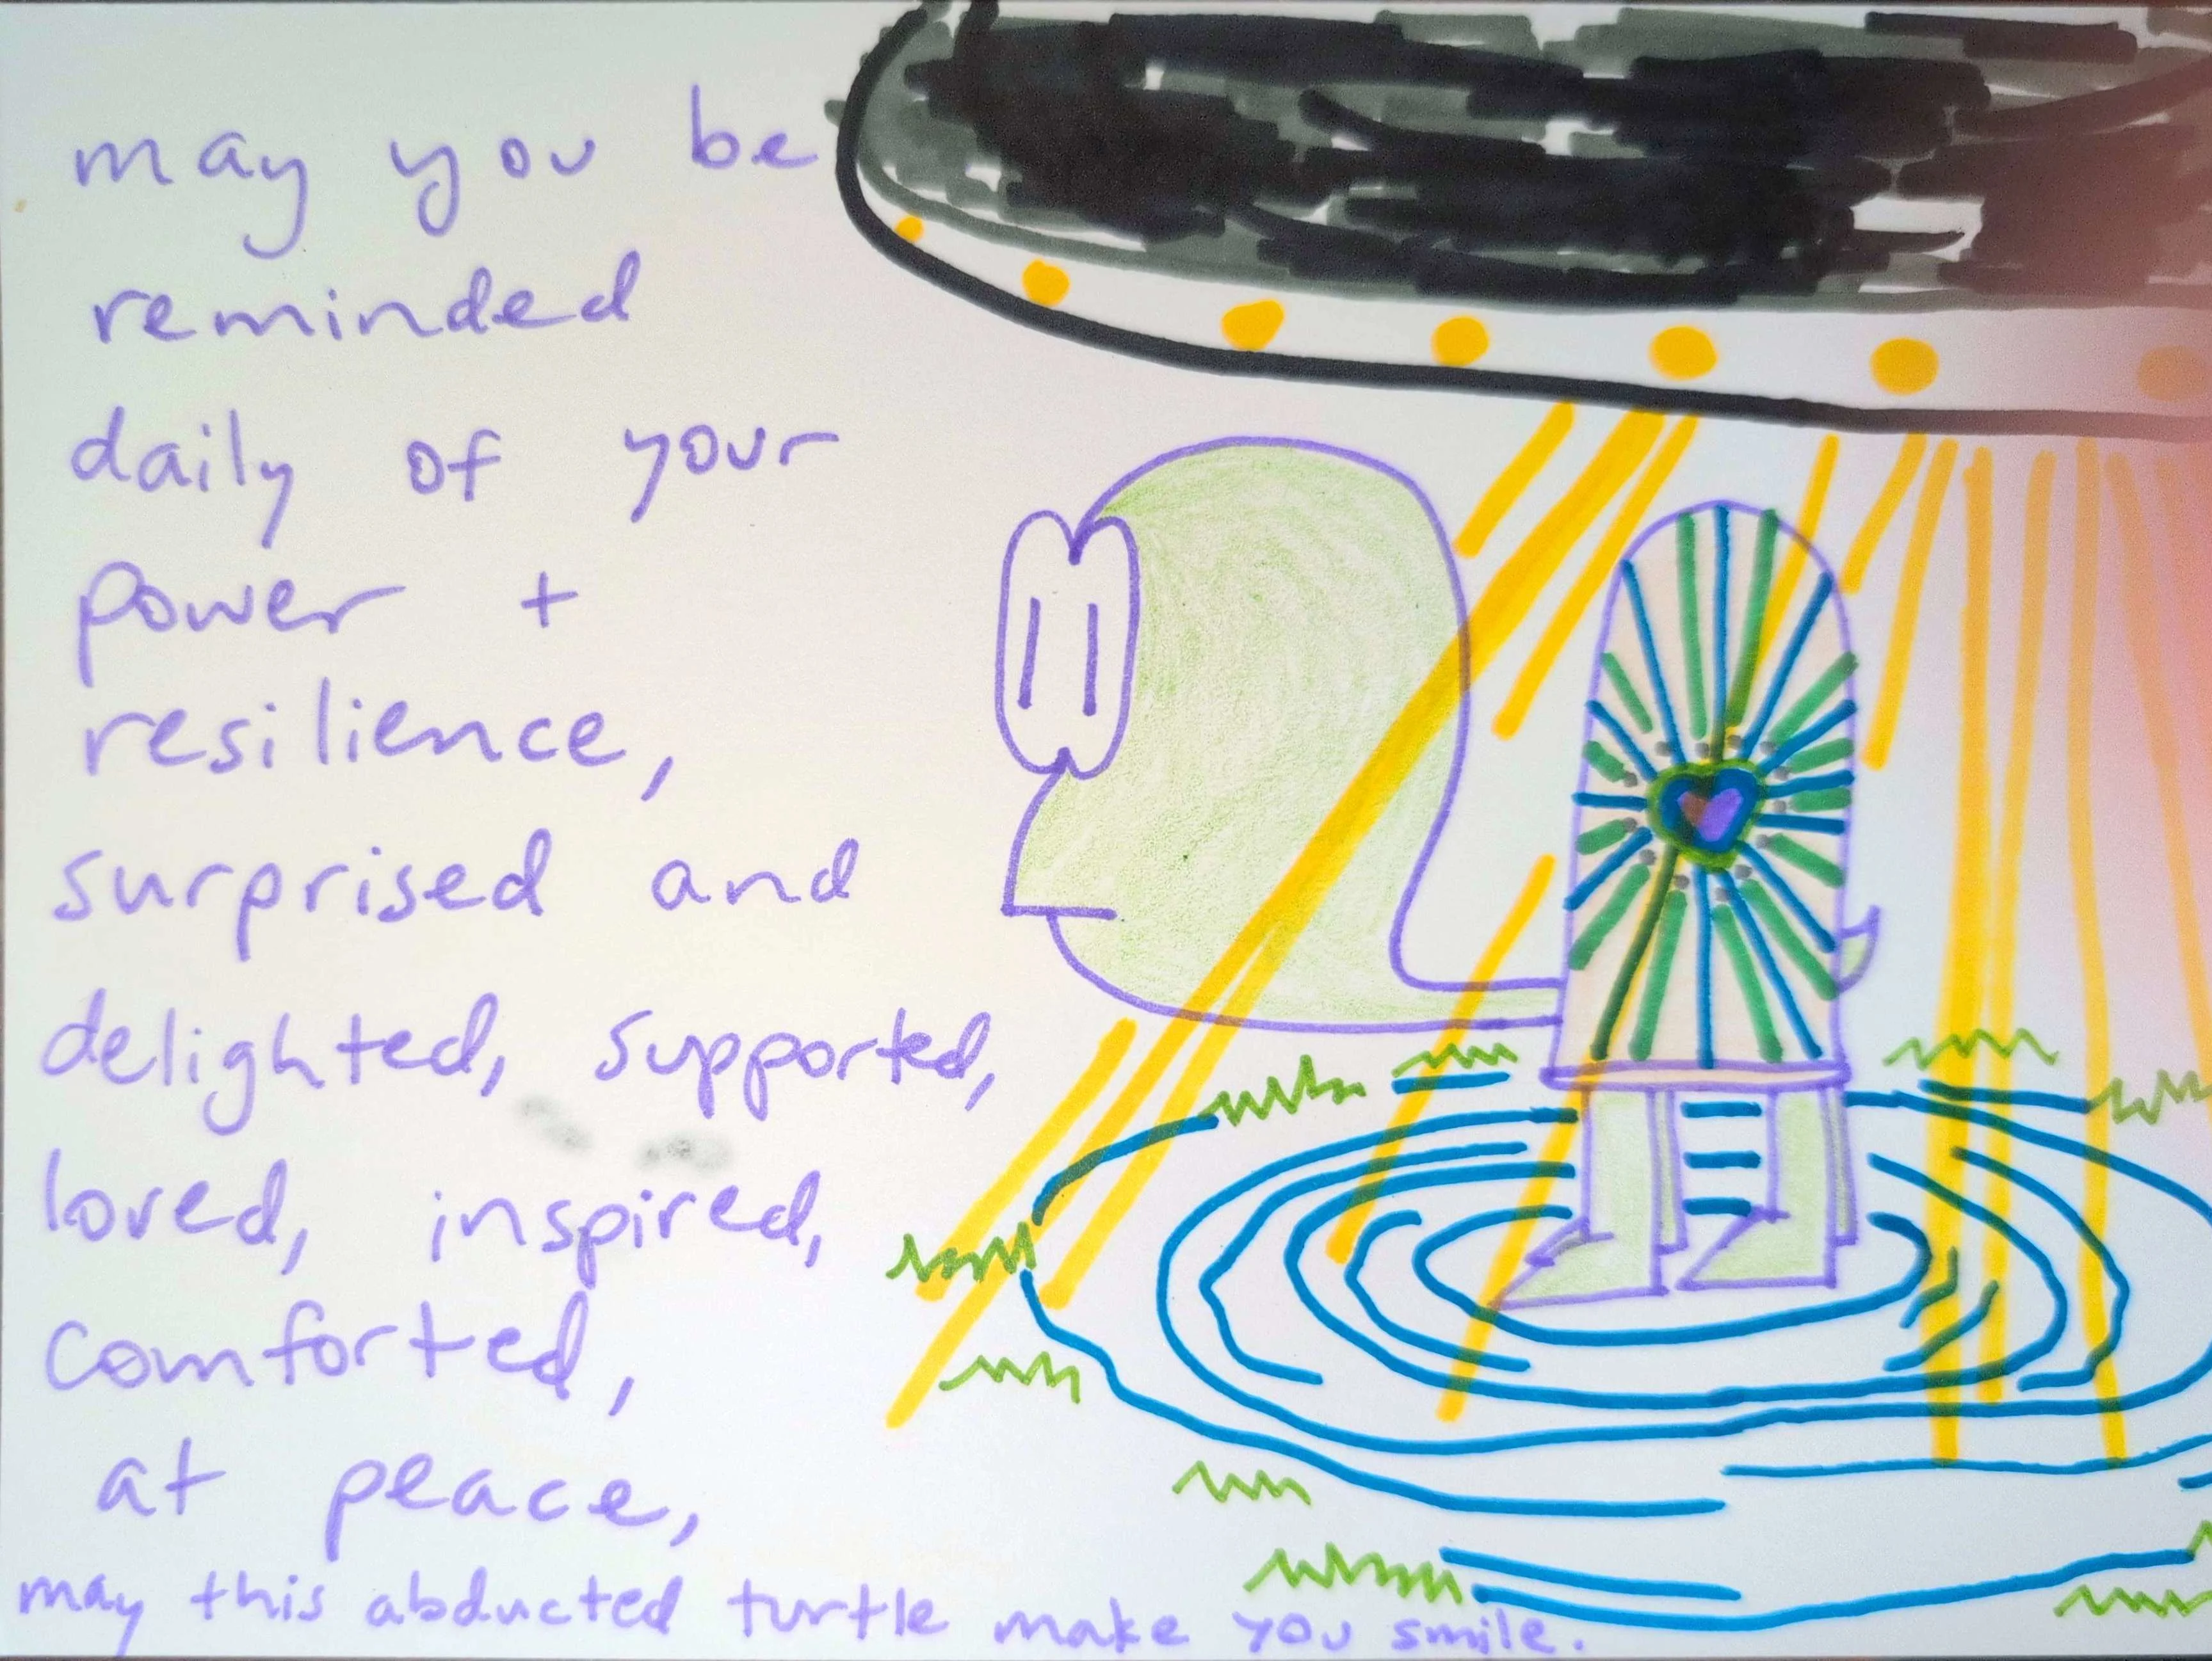 may you be
reminded
daily of your
power +
resilience,
surprised and
delighted, supported,
loved, inspired,
comforted,
at peace,
may this abducted turtle make you smile.